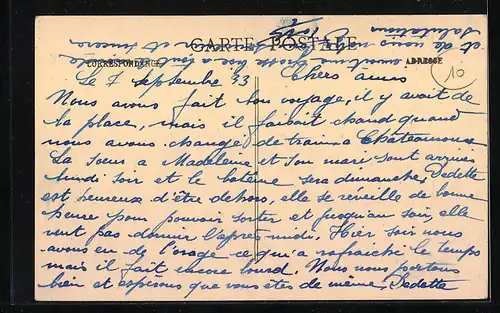 CARTE POSTALE
CORRESPONDENCE
ADRESSE
10
Le 7 Septembre 33 Chers amis
Nous avons fait bon voyage, il y avait de
la place, mais il faisait chaud quand
nous avons changé de train a Châteauroux
La soeur a Madeleine et son mari sont arrivés
lundi soir et le batême sera dimanche, Dedette
est heureux d'être dehors, elle se réveille de bonne
heure pour pouvoir sortir et jusqu'au soir, elle
veut pas dormir l'après midi. Hier soir nous
avons eu de l'orage ce qu'a rafraichi le temps
mais il fait encore lourd. Nous nous portons
bien et espérons que vous êtes de même, Dedette